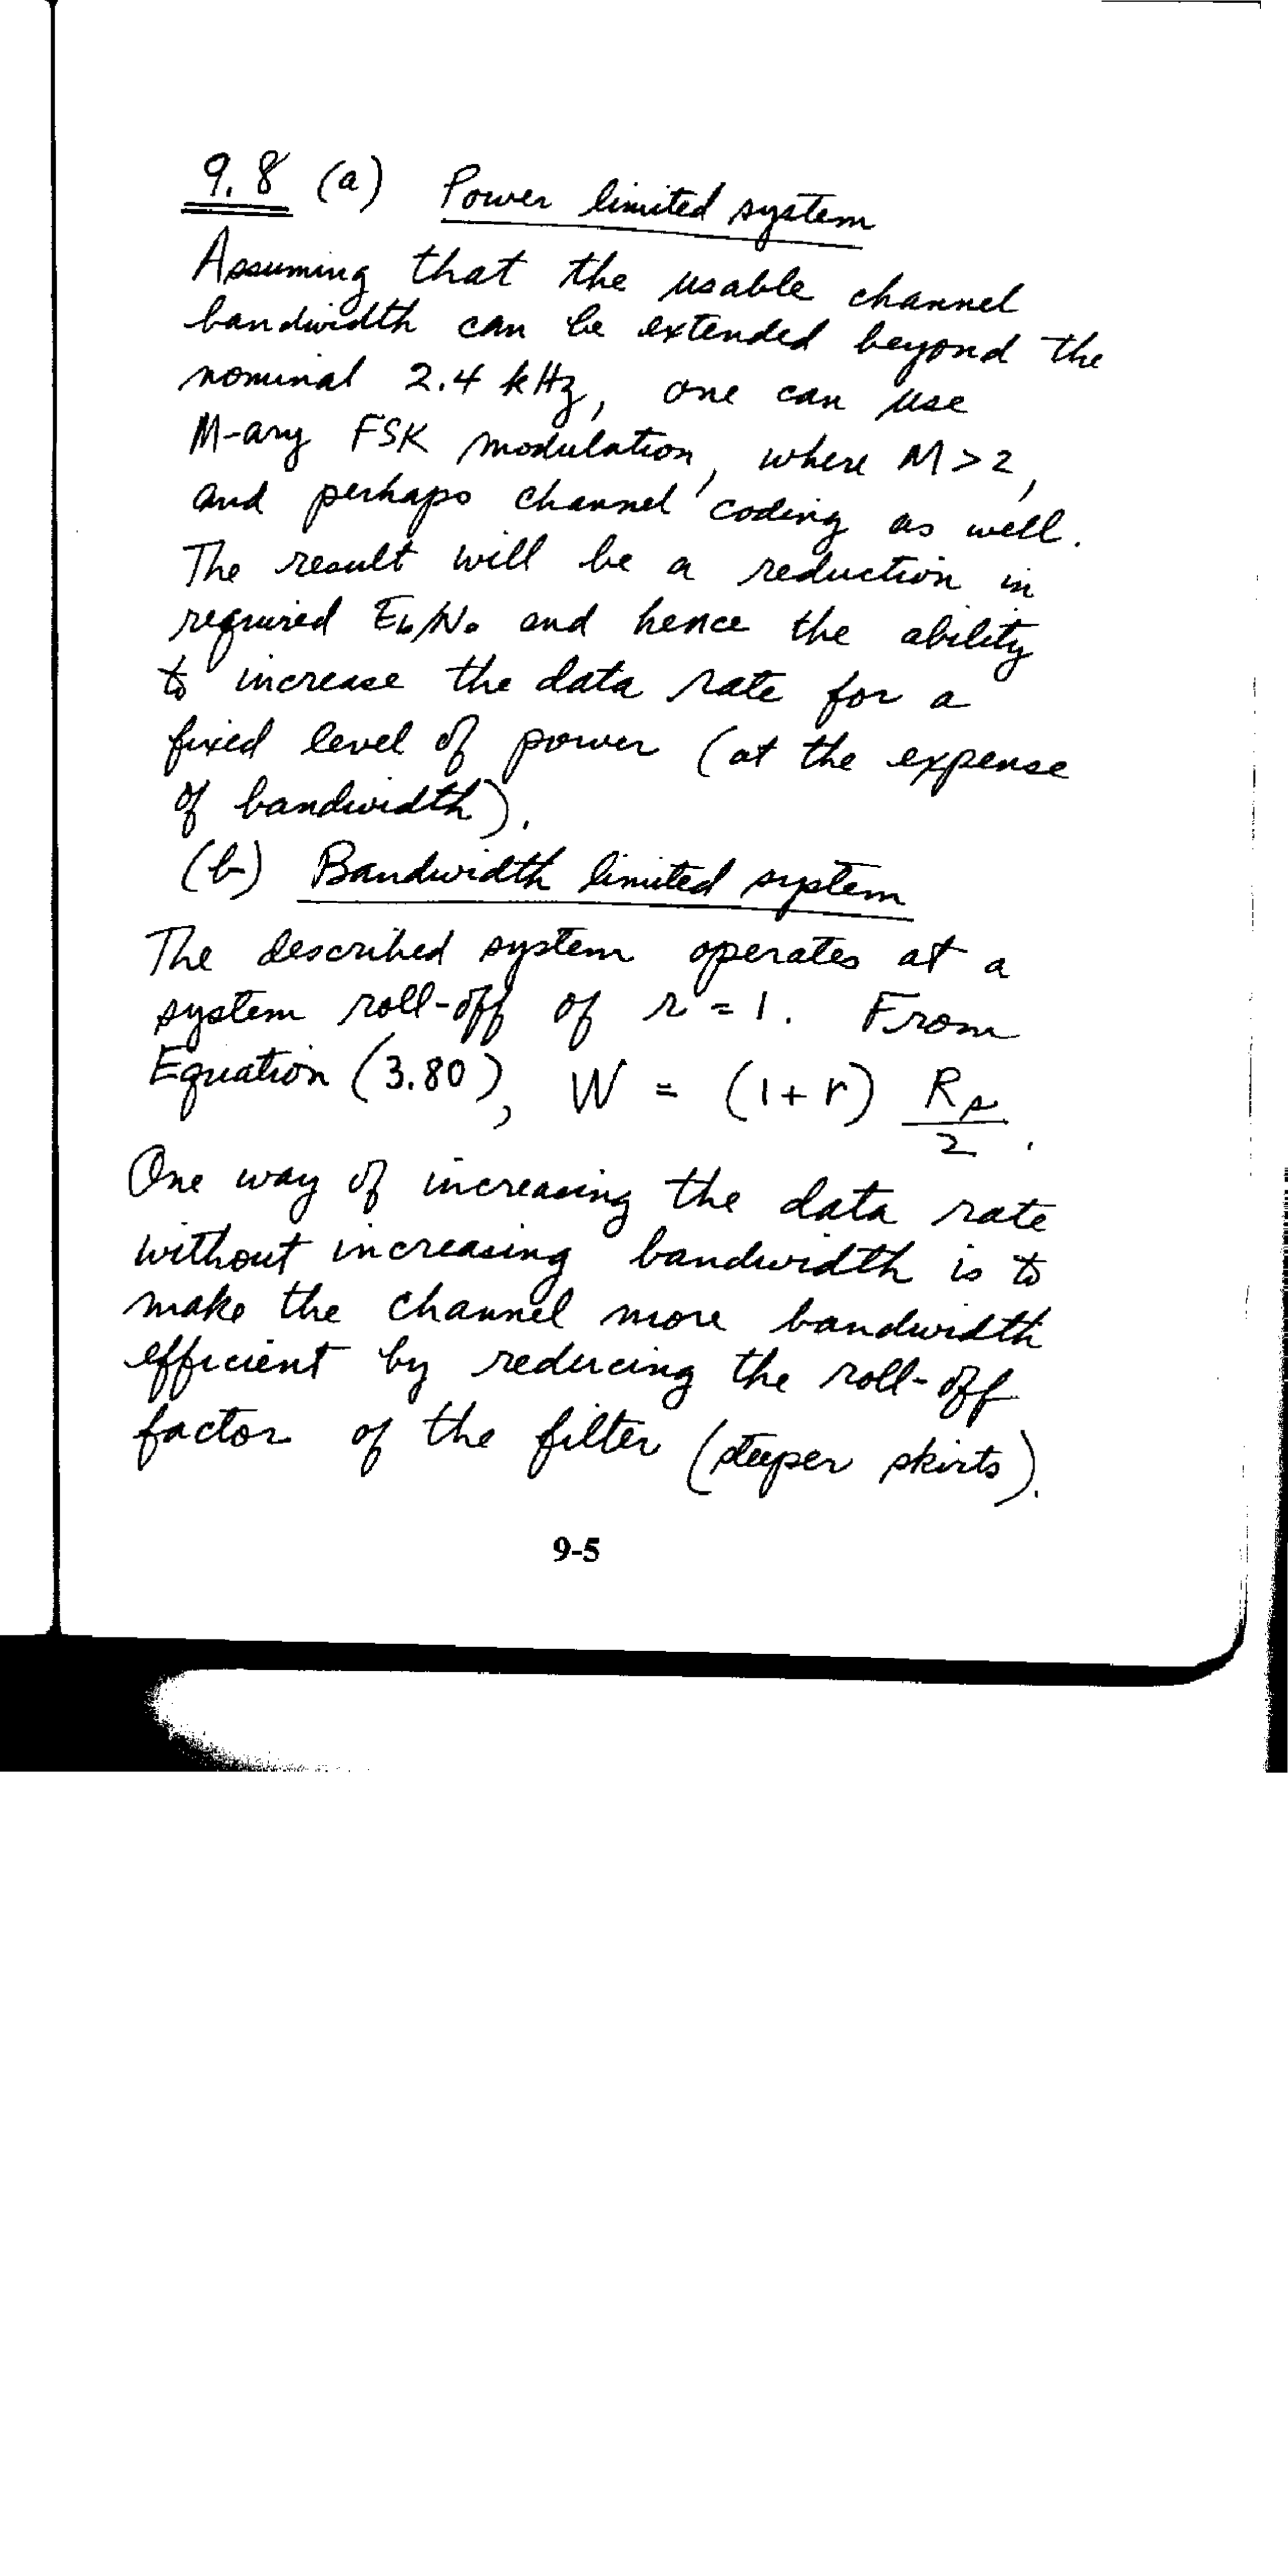 9.8 (a) Power limited system
Assuming that the usable channel
bandwidth can be extended beyond the
nominal 2.4 kHz, one can use
M-ary FSK modulation, where M > 2,
and perhaps channel coding as well.
The result will be a reduction in
required Eb/No and hence the ability
to increase the data rate for a
fixed level of power (at the expense
of bandwidth).
(b) Bandwidth limited system
The described system operates at a
system roll-off of r = 1. From
Equation (3.80), W = (1 + r) Rs/2.
One way of increasing the data rate
without increasing bandwidth is to
make the channel more bandwidth
efficient by reducing the roll-off
factor of the filter (steeper skirts).
9-5